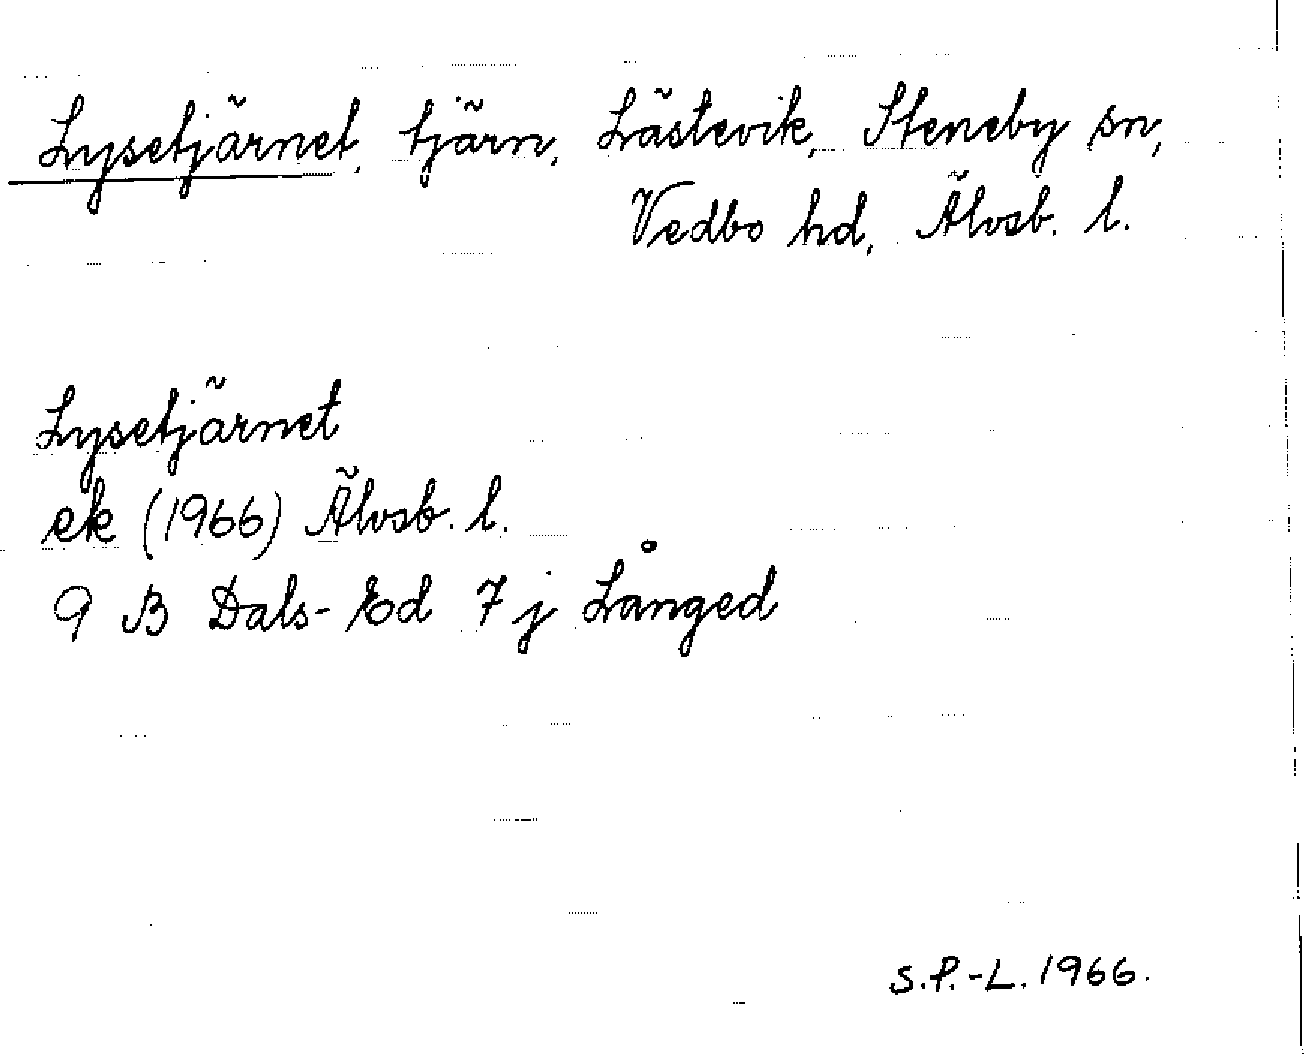 Lysetjärnet, tjärn, Lästevik, Steneby sn,
Vedbo hd, Älvsb. l.
Lysetjärnet
ek (1966) Älvsb. l.
9 B Dals-Ed 7 j Långed
S.P.-L. 1966.